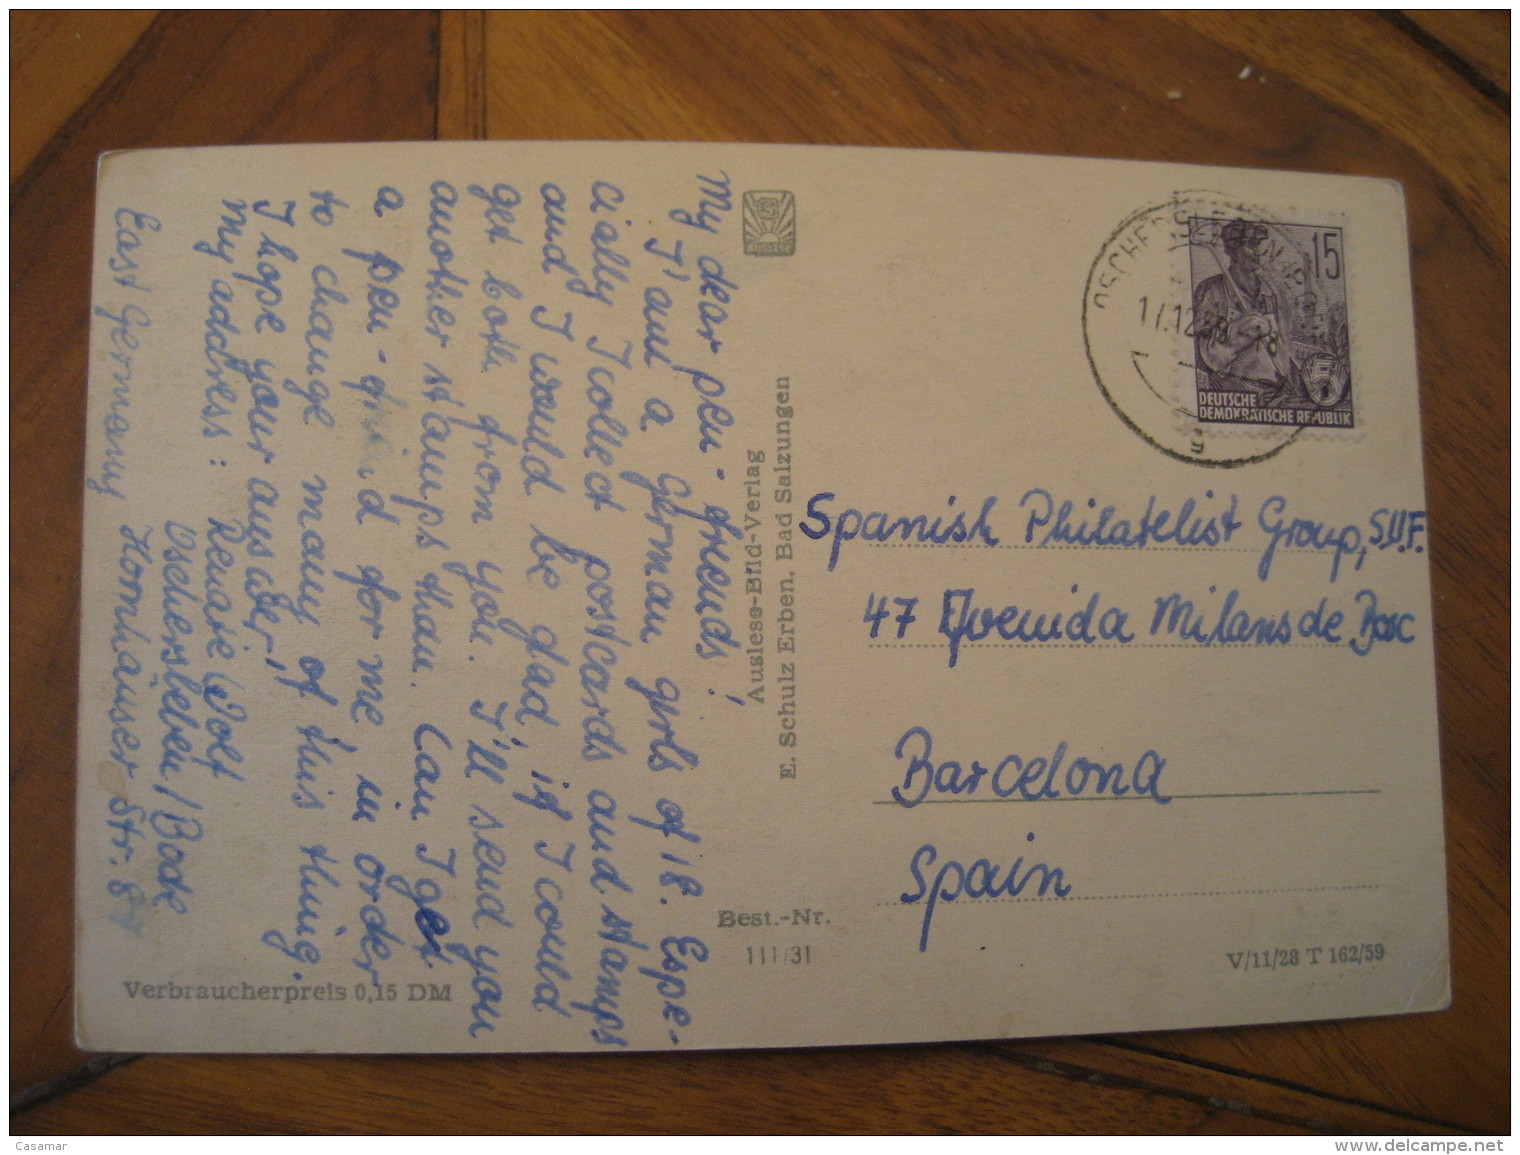 My dear pen-friends!
I'am a german girls of 18. Espe-
cially I collect postcards and stamps
and I would be glad, if I could
get both from you. I'll send you
another stamps than. Can I get
a pen-friend for me, in order
to change many of this thing.
I hope your answer!
My address: Renate Wolf
Oschersleben/Bode
Hornhäuser Str. 8
East Germany
Verbraucherpreis 0,15 DM
Auslese-Bild-Verlag
E. Schulz Erben, Bad Salzungen
Best.-Nr.
111/31
15
5
DEUTSCHE
DEMOKRATISCHE REPUBLIK
OSCHERSLEBEN
17.12.
Spanish Philatelist Group, S.U.F.
47 Avenida Milans de Bosc
Barcelona
Spain
V/11/28 T 162/59
Casamar
www.delcampe.net